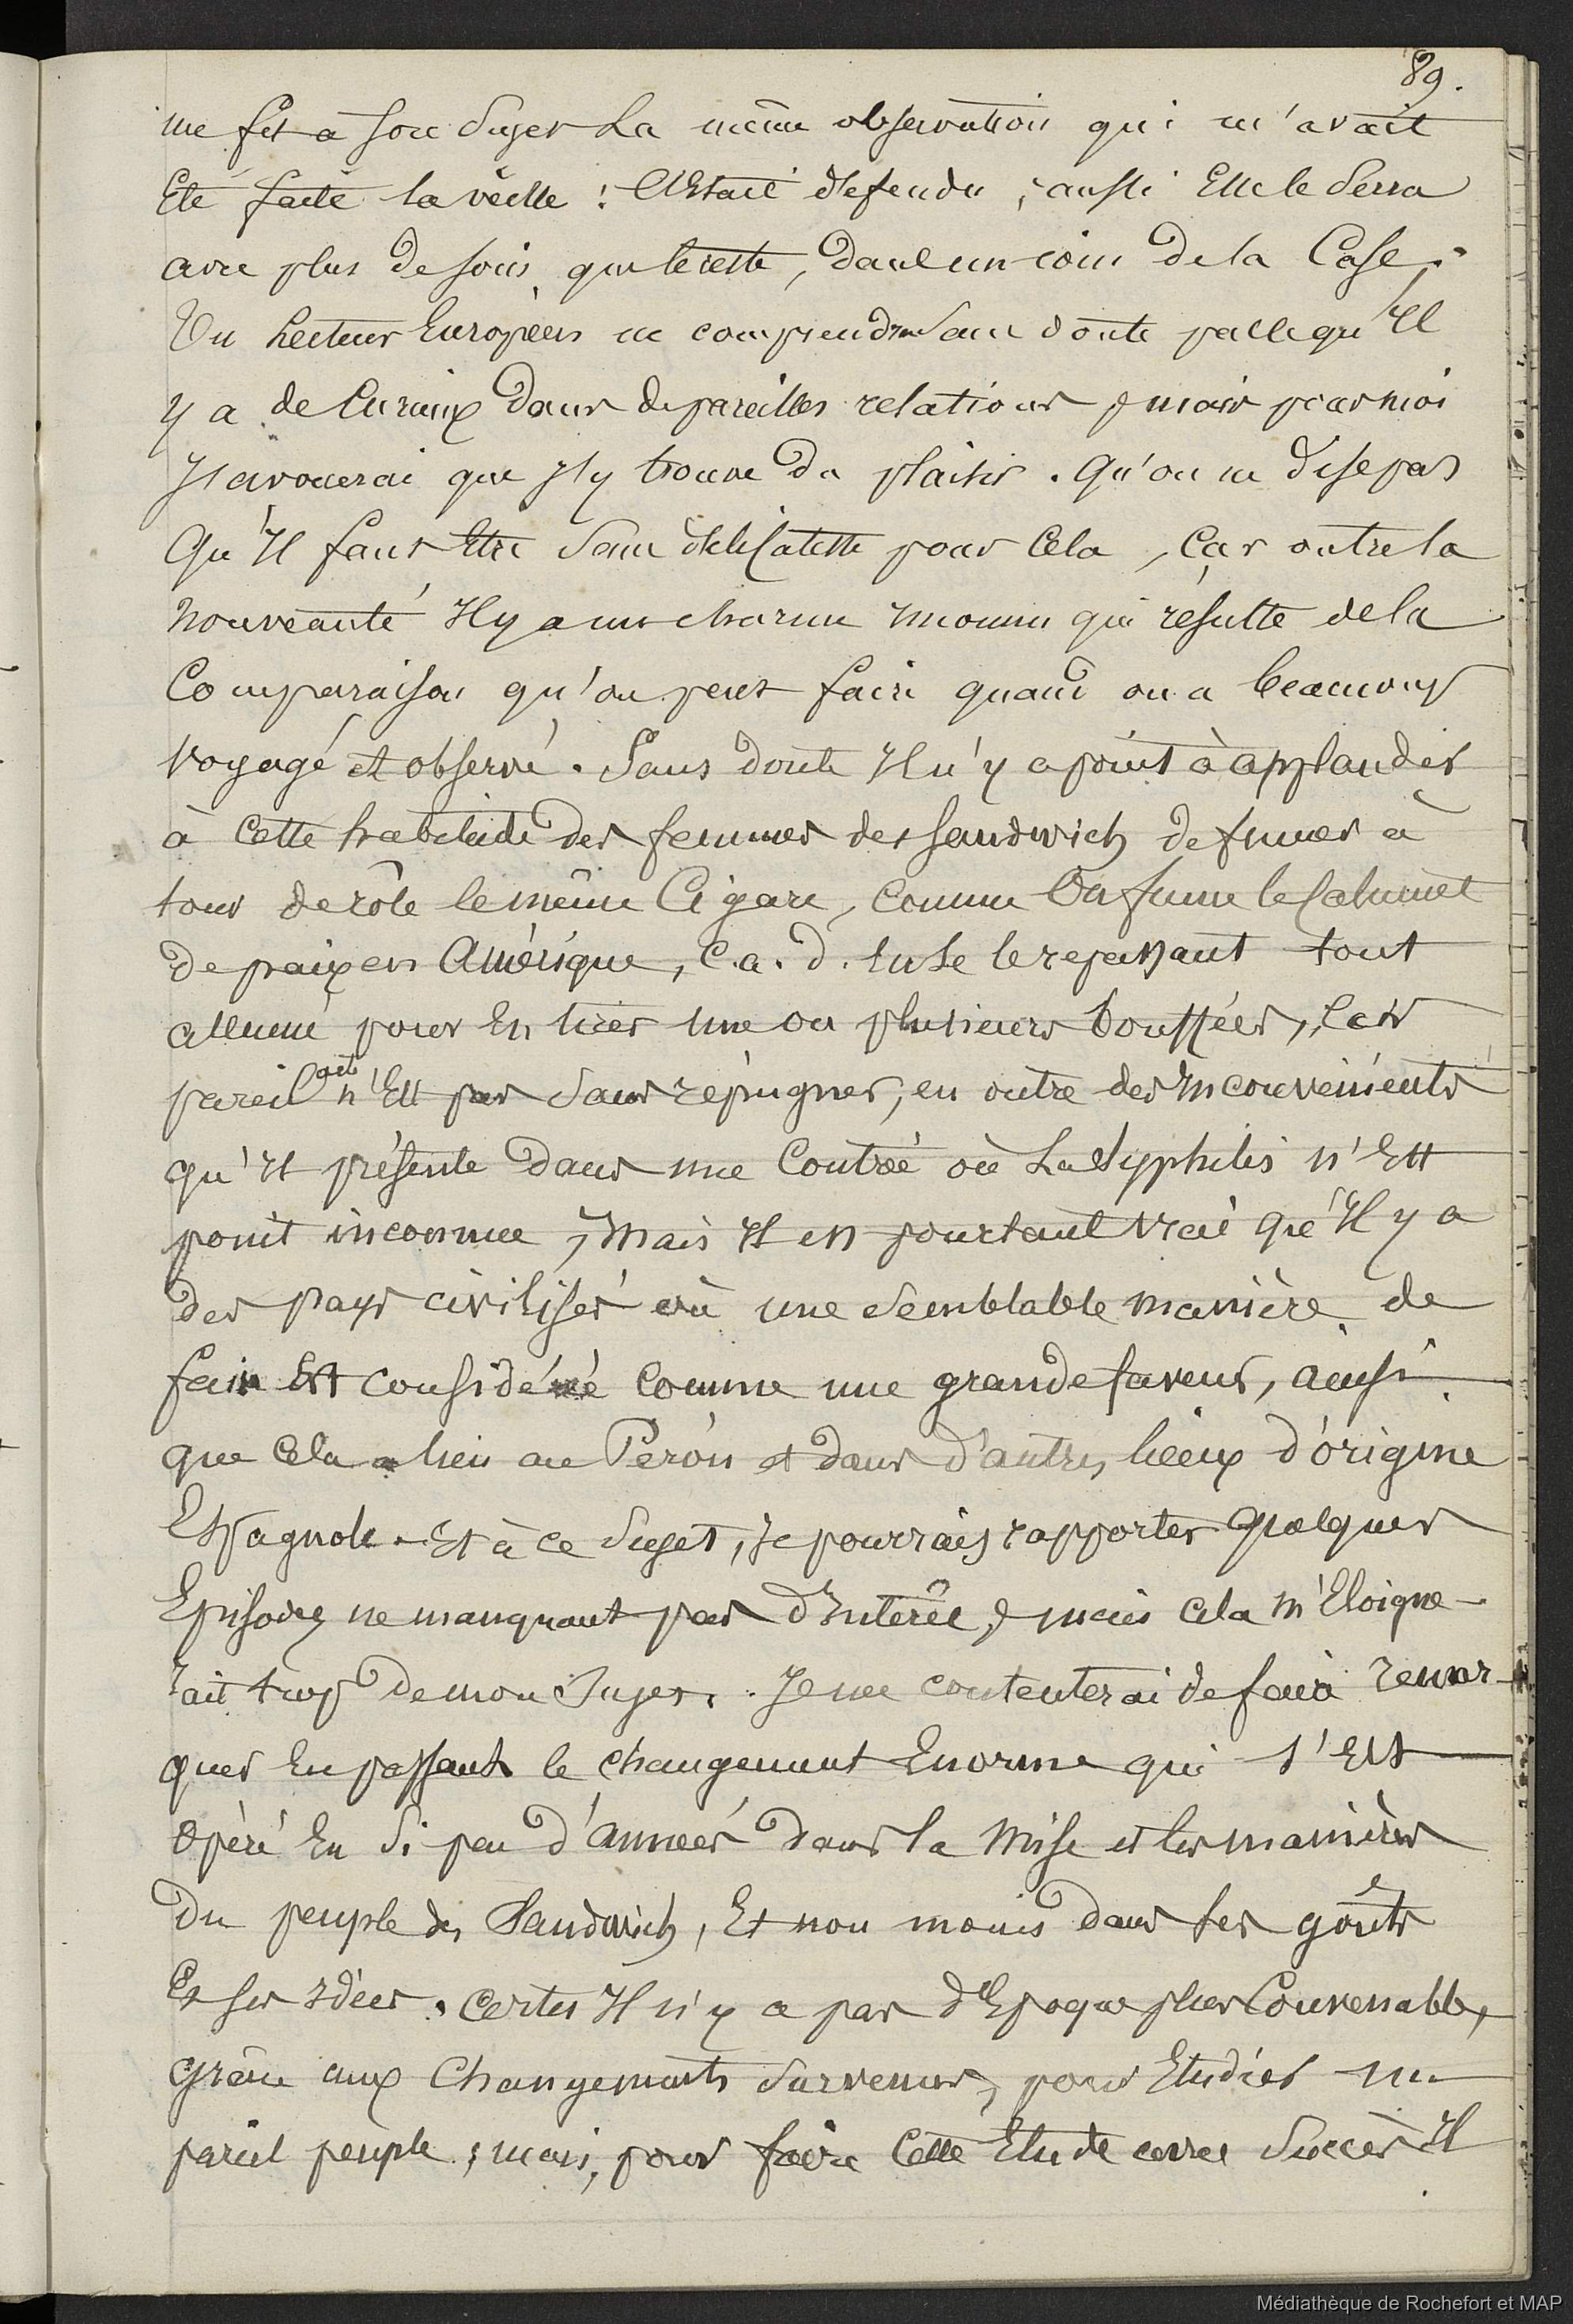 89.
me fit à son sujet la même observation qui m'avait
Eté faite la veille : C'Etait défendu ; aussi Elle le serra
avec plus de soin que le reste, dans un coin de la Case.
Un Lecteur Européen ne comprendra sans doute pas ce qu'Il
y a de Curieux dans de pareilles relations ; mais pour moi
J'avouerai que J'y trouve du plaisir. Qu'on ne dise pas
Qu'Il faut Etre sans délicatesse pour Cela, Car outre la
Nouveauté Il y a un charme Inconnu qui résulte de la
Comparaison qu'on peut faire quand on a beaucoup
Voyagé et observé. Sans doute Il n'y a point à applaudir
à Cette habitude des femmes des Sandwich de fumer à
tour de rôle le même Cigare, Comme On fume le Calumet
de paix en Amérique, C.a.d. En se le repassant tout
allumé pour En tirer Une ou plusieurs bouffées, Car
pareil acte n'Est pas sans répugner, en outre des Inconvénients
qu'Il présente dans une Contrée où La Syphilis n'Est
point inconnue, Mais Il est pourtant vrai qu'Il y a
des pays civilisés où une semblable manière de
faire Est considérée Comme une grande faveur, ainsi
que Cela a lieu au Pérou et dans d'autres lieux d'origine
Espagnole. Et à ce Sujet, Je pourrais rapporter quelques
Episodes ne manquant pas d'Interêt ; mais cela m'Eloigne-
rait trop de mon Sujet. Je me contenterai de faire remar-
quer En passant le changement Enorme qui s'Est
Opéré En si peu d'années dans la Mise et les manières
Du peuple des Sandwich, Et non moins dans ses goûts
Et ses Idées. Certes Il n'y a pas d'Epoque plus Convenable,
Grâce aux Changements survenus, pour Etudier un
pareil peuple ; mais, pour faire Cette Etude avec Succès Il
Médiathèque de Rochefort et MAP